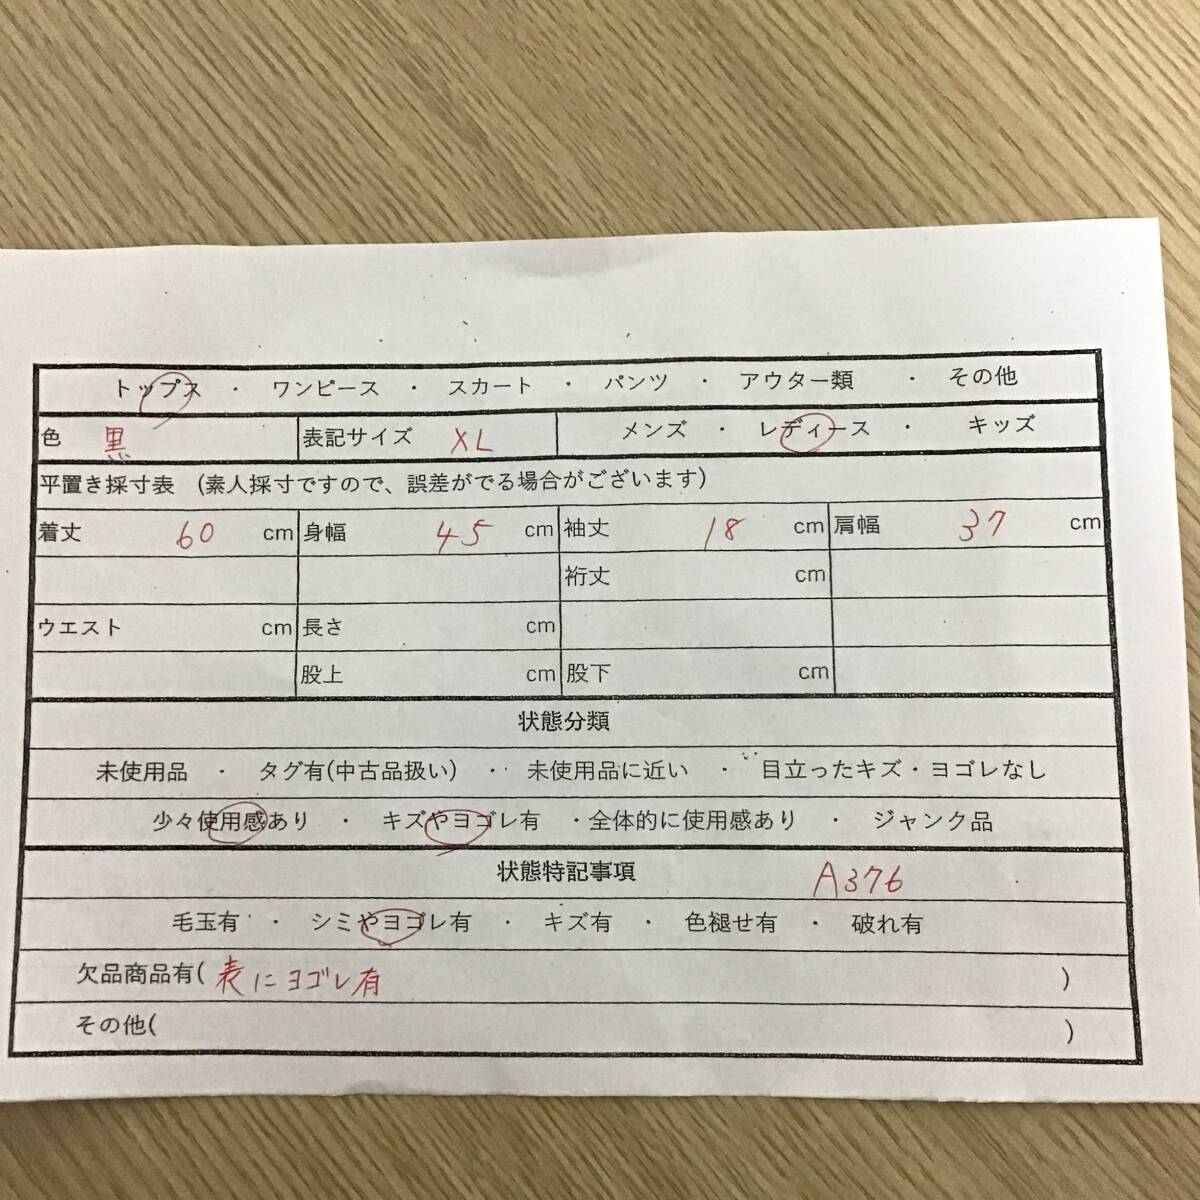 トップス ・ ワンピース ・ スカート ・ パンツ ・ アウター類 ・ その他
色 黒 表記サイズ XL メンズ ・ レディース ・ キッズ
平置き採寸表 (素人採寸ですので、誤差がでる場合がございます)
着丈 60 cm 身幅 45 cm 袖丈 18 cm 肩幅 37 cm
裄丈 cm
ウエスト cm 長さ cm
股上 cm 股下 cm
状態分類
未使用品 ・ タグ有(中古品扱い) ・ 未使用品に近い ・ 目立ったキズ・ヨゴレなし
少々使用感あり ・ キズやヨゴレ有 ・全体的に使用感あり ・ ジャンク品
状態特記事項 A376
毛玉有 ・ シミやヨゴレ有 ・ キズ有 ・ 色褪せ有 ・ 破れ有
欠品商品有( 表にヨゴレ有 )
その他( )